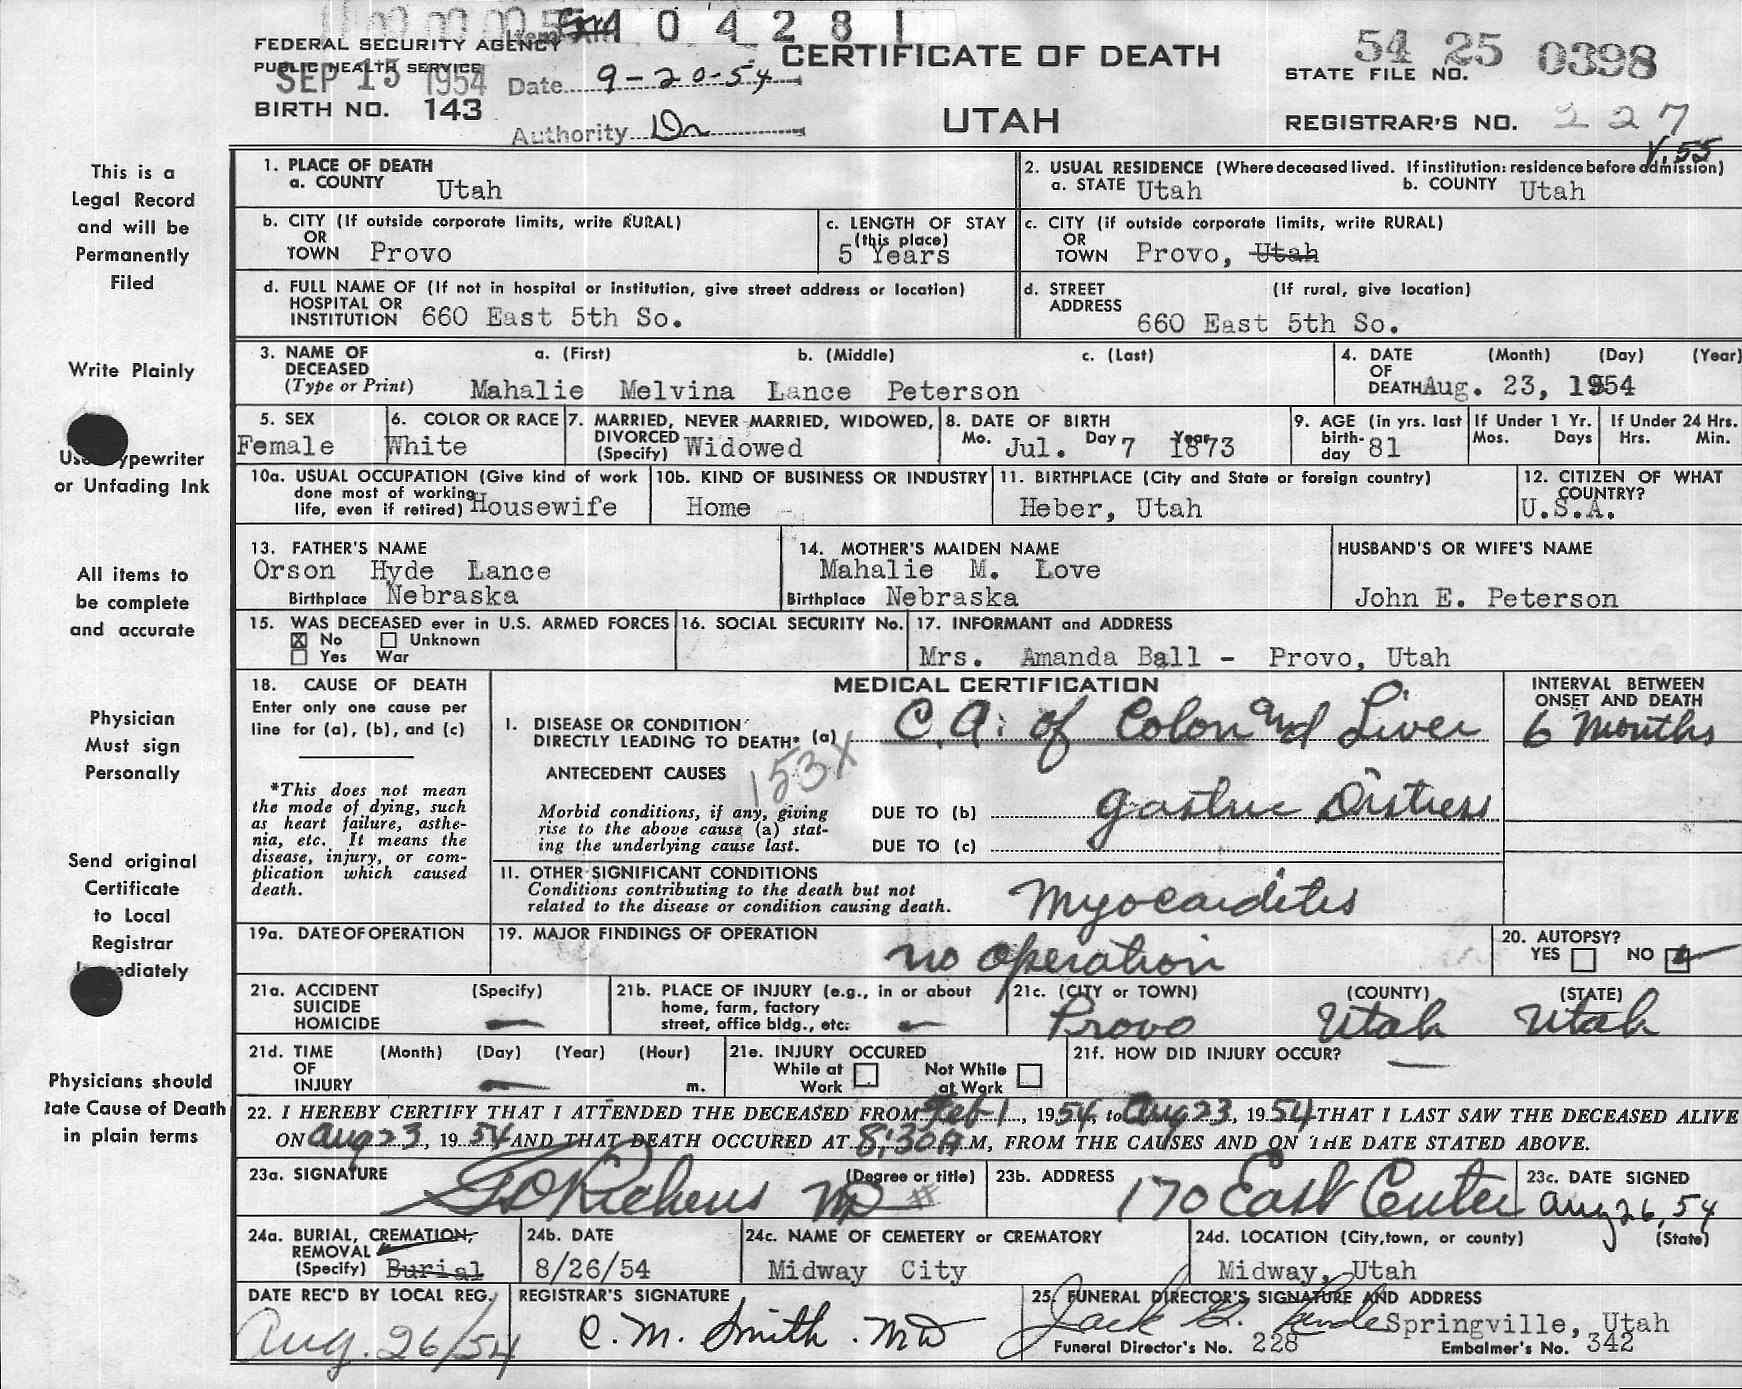 404281
FEDERAL SECURITY AGENCY
PUBLIC HEALTH SERVICE
SEP 15 1954
Date 9-20-54
CERTIFICATE OF DEATH
54 25 0398
STATE FILE NO.
BIRTH NO. 143
Authority Dr
UTAH
REGISTRAR'S NO. 227
V.55
This is a
Legal Record
and will be
Permanently
Filed
Write Plainly
Use Typewriter
or Unfading Ink
All items to
be complete
and accurate
Physician
Must sign
Personally
Send original
Certificate
to Local
Registrar
Immediately
Physicians should
state Cause of Death
in plain terms
1. PLACE OF DEATH
a. COUNTY Utah
2. USUAL RESIDENCE (Where deceased lived. If institution: residence before admission)
a. STATE Utah b. COUNTY Utah
b. CITY (If outside corporate limits, write RURAL)
OR
TOWN Provo
c. LENGTH OF STAY
(this place)
5 Years
c. CITY (if outside corporate limits, write RURAL)
OR
TOWN Provo, Utah
d. FULL NAME OF (If not in hospital or institution, give street address or location)
HOSPITAL OR
INSTITUTION 660 East 5th So.
d. STREET (If rural, give location)
ADDRESS
660 East 5th So.
3. NAME OF a. (First) b. (Middle) c. (Last)
DECEASED
(Type or Print) Mahalie Melvina Lance Peterson
4. DATE (Month) (Day) (Year)
OF
DEATH Aug. 23, 1954
5. SEX
Female
6. COLOR OR RACE
White
7. MARRIED, NEVER MARRIED, WIDOWED,
DIVORCED
(Specify) Widowed
8. DATE OF BIRTH
Mo. Jul. Day 7 Year 1873
9. AGE (in yrs. last
birth-
day 81
If Under 1 Yr.
Mos. Days
If Under 24 Hrs.
Hrs. Min.
10a. USUAL OCCUPATION (Give kind of work
done most of working
life, even if retired) Housewife
10b. KIND OF BUSINESS OR INDUSTRY
Home
11. BIRTHPLACE (City and State or foreign country)
Heber, Utah
12. CITIZEN OF WHAT
COUNTRY?
U.S.A.
13. FATHER'S NAME
Orson Hyde Lance
Birthplace Nebraska
14. MOTHER'S MAIDEN NAME
Mahalie M. Love
Birthplace Nebraska
HUSBAND'S OR WIFE'S NAME
John E. Peterson
15. WAS DECEASED ever in U.S. ARMED FORCES
X No Unknown
Yes War
16. SOCIAL SECURITY No.
17. INFORMANT and ADDRESS
Mrs. Amanda Ball - Provo, Utah
18. CAUSE OF DEATH
Enter only one cause per
line for (a), (b), and (c)
*This does not mean
the mode of dying, such
as heart failure, asthe-
nia, etc. It means the
disease, injury, or com-
plication which caused
death.
MEDICAL CERTIFICATION
I. DISEASE OR CONDITION
DIRECTLY LEADING TO DEATH* (a) C.A. of Colon and Liver
INTERVAL BETWEEN
ONSET AND DEATH
6 Months
153X
ANTECEDENT CAUSES
Morbid conditions, if any, giving
rise to the above cause (a) stat-
ing the underlying cause last.
DUE TO (b) Gastric Distress
DUE TO (c)
11. OTHER SIGNIFICANT CONDITIONS
Conditions contributing to the death but not
related to the disease or condition causing death.
Myocarditis
19a. DATE OF OPERATION
19. MAJOR FINDINGS OF OPERATION
no operation
20. AUTOPSY?
YES NO
21a. ACCIDENT (Specify)
SUICIDE
HOMICIDE —
21b. PLACE OF INJURY (e.g., in or about
home, farm, factory
street, office bldg., etc. —
21c. (CITY or TOWN) (COUNTY) (STATE)
Provo Utah Utah
21d. TIME (Month) (Day) (Year) (Hour)
OF
INJURY — m.
21e. INJURY OCCURED
While at Not While
Work at Work
21f. HOW DID INJURY OCCUR? —
22. I HEREBY CERTIFY THAT I ATTENDED THE DECEASED FROM Feb 1, 1954, to Aug 23, 1954 THAT I LAST SAW THE DECEASED ALIVE
ON Aug 23, 1954 AND THAT DEATH OCCURED AT 8:30A.M, FROM THE CAUSES AND ON THE DATE STATED ABOVE.
23a. SIGNATURE (Degree or title)
MD #
23b. ADDRESS
170 East Center
23c. DATE SIGNED
Aug 26, 54
24a. BURIAL, CREMATION,
REMOVAL
(Specify) Burial
24b. DATE
8/26/54
24c. NAME OF CEMETERY or CREMATORY
Midway City
24d. LOCATION (City, town, or county) (State)
Midway, Utah
DATE REC'D BY LOCAL REG.
Aug. 26/54
REGISTRAR'S SIGNATURE
C. M. Smith. MD
25. FUNERAL DIRECTOR'S SIGNATURE AND ADDRESS
Jack Springville, Utah
Funeral Director's No. 228 Embalmer's No. 342